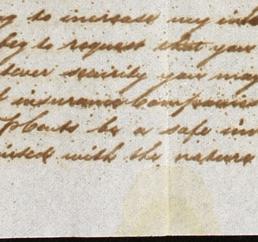 to increase my in
beg to request that you
ever security you may
insurance Companies
be a safe in
with the nature